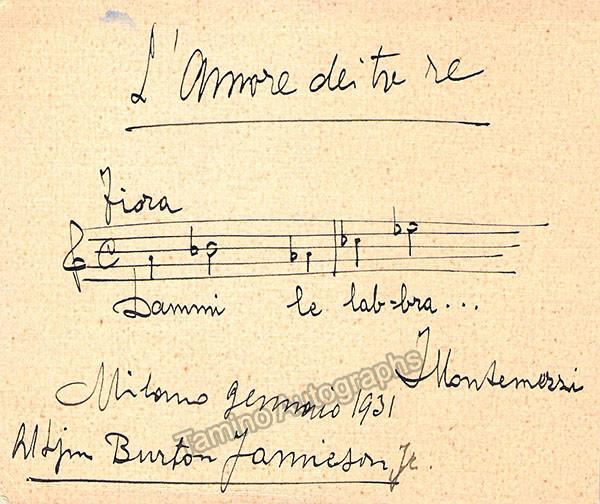 L'Amore dei tre re
Fiora
Dammi le lab-bra...
IMontemezzi
Milano gennaio 1931
Burton Jamieson Jr.
Tamino Autographs